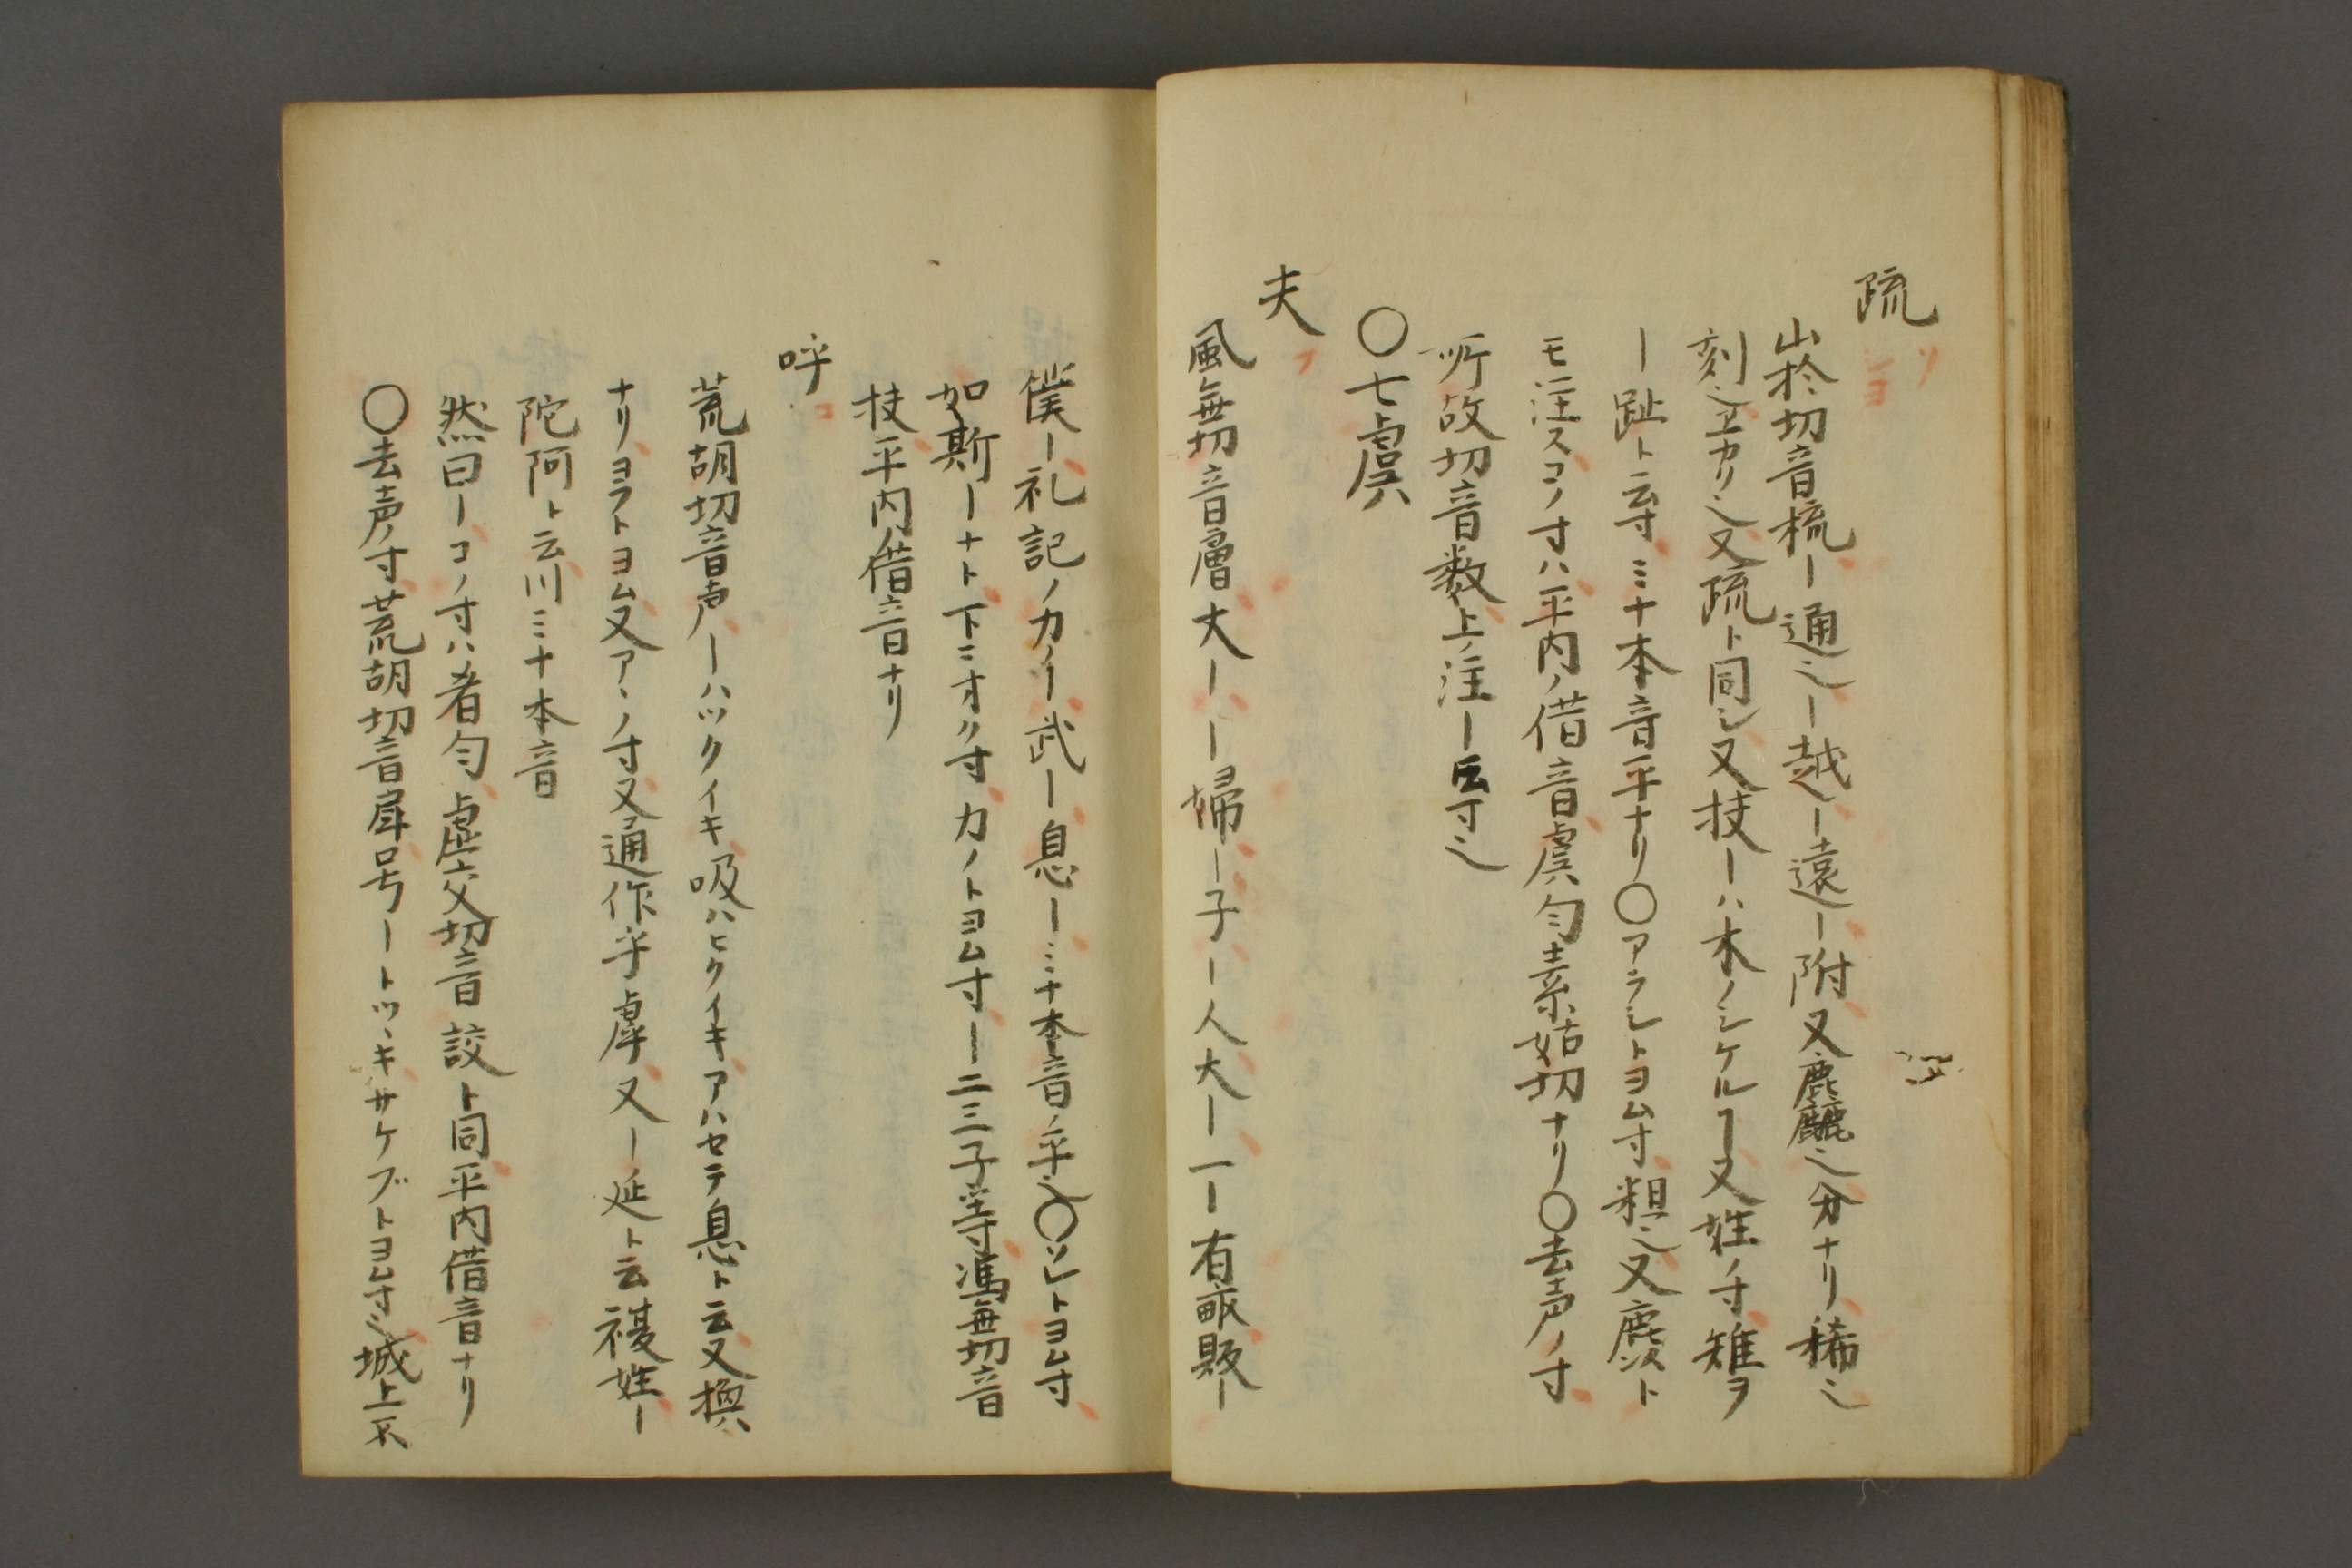 疏 ソ ヨ
山於切音梳ー通也ー越ー遠ー附又麁麤之分ナリ稀也
刻也ヱカリ也又疏ト同シ又扶ー八木ノシケルヿ又姓ノ寸雉ヲ
ー趾ト云寸ミナ本音平ナリ〇アラシトヨム寸粗也又麁ト
モ注スコノ寸ハ平内ノ借音虞匀素姑切ナリ〇去声ノ寸
所故切音数上ノ注ー云寸也
〇七虞
夫 フ
風無切音膚大ーー婦ー子ー人大ー一ー有畝販ー
僕ー礼記ノカノー武ー息ーミナ本音ノ平也〇ソレトヨム寸
如斯ーナト下ニオク寸カノトヨム寸ー二三子等寸馮無切音
扶平内借音ナリ
呼 コ
荒胡切音声ーハツクイキ吸ハヒクイキアハセテ息ト云又換
ナリヨフトヨム又アヽノ寸又通作乎虖又ー延ト云複姓ー
陀阿ト云川ミナ本音
然曰ーコノ寸ハ肴匀虚交切音詨ト同平内借音ナリ
〇去声ノ寸荒胡切音嫭号ートツヽキサケブトヨム寸也城上不